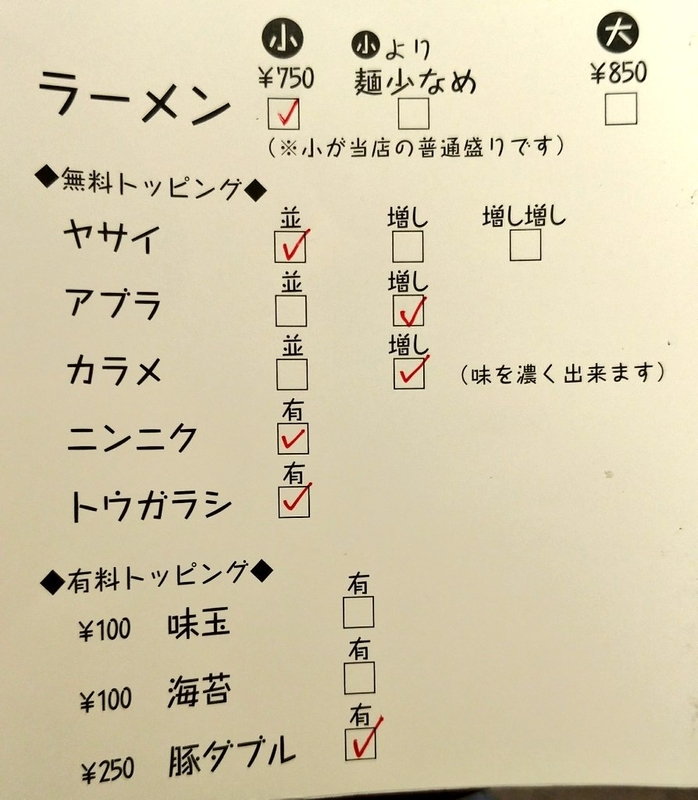 小 小より 大
¥750 麺少なめ ¥850
ラーメン
(※小が当店の普通盛りです)
◆無料トッピング◆
並 増し 増し増し
ヤサイ
並 増し
アブラ
並 増し
カラメ (味を濃く出来ます)
有
ニンニク
有
トウガラシ
◆有料トッピング◆
有
¥100 味玉
有
¥100 海苔
有
¥250 豚ダブル